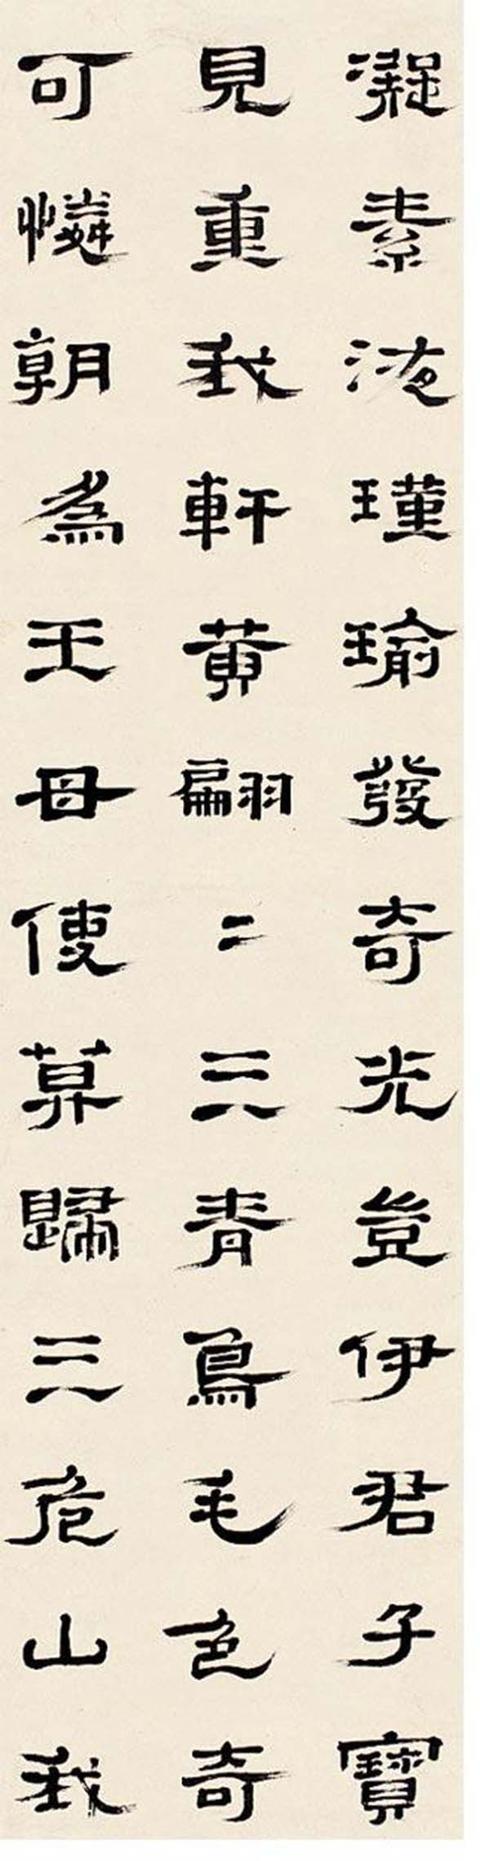 凝素液瑾瑜發奇光豈伊君子寶
見重我軒黄翩〻三青鳥毛色奇
可憐朝為王母使莫歸三危山我